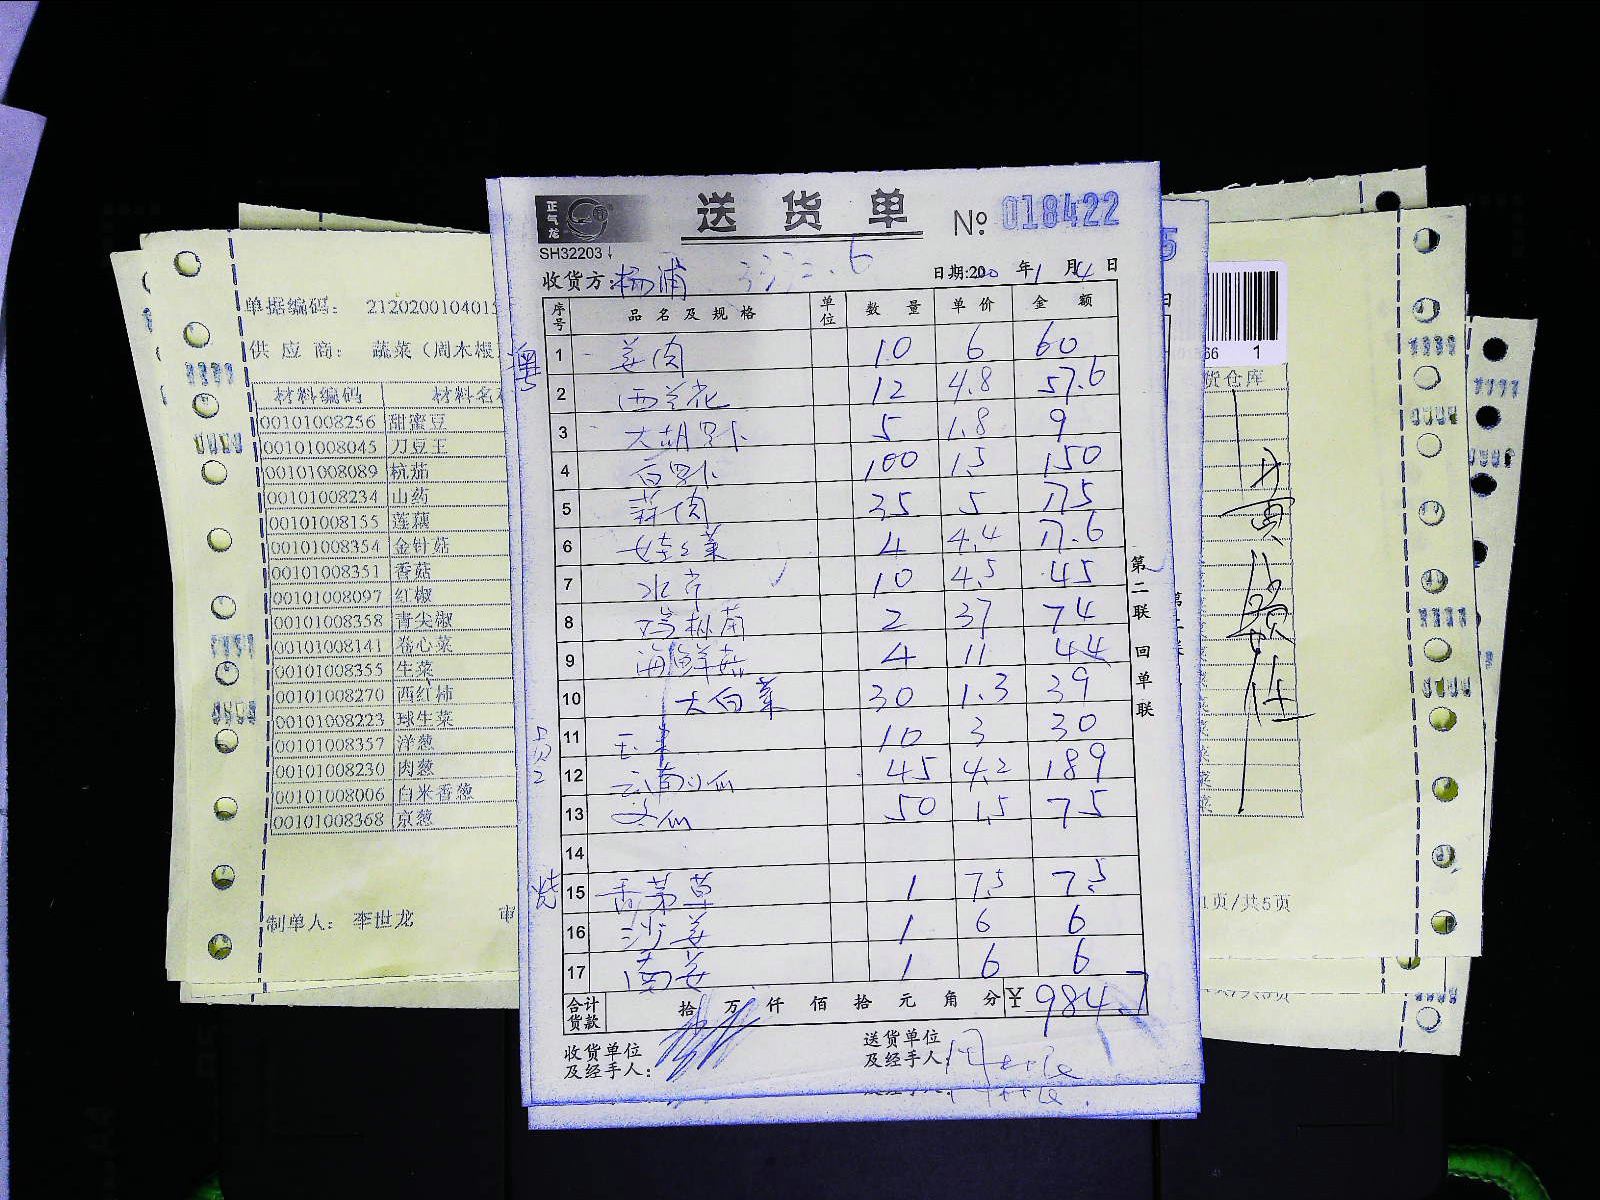 正气龙
送货单
№ 018422
SH32203
收货方: 杨浦 3332.6
日期:2020年1月4日
序号 品名及规格 单位 数量 单价 金额
粤
1 姜肉 10 6 60
2 西兰花 12 4.8 57.6
3 大胡罗卜 5 1.8 9
4 白罗卜 100 1.5 150
5 蒜肉 35 5 175
6 娃娃菜 4 4.4 17.6
7 水芹 10 4.5 45
8 鸡枞菌 2 37 74
9 海鲜菇 4 11 44
10 大白菜 30 1.3 39
11 玉米 10 3 30
12 云南小瓜 45 4.2 189
13 冬瓜 50 1.5 75
14
烧
15 香茅草 1 7.5 7.5
16 沙姜 1 6 6
17 南姜 1 6 6
合计货款 拾 万 仟 佰 拾 元 角 分 ¥ 984.7
收货单位及经手人:
送货单位及经手人:
第二联 回单联
单据编码: 2120200104015
供应商: 蔬菜(周木根
材料编码 材料名称
00101008256 甜蜜豆
00101008045 刀豆王
00101008089 杭茄
00101008234 山药
00101008155 莲藕
00101008354 金针菇
00101008351 香菇
00101008097 红椒
00101008358 青尖椒
00101008141 卷心菜
00101008355 生菜
00101008270 西红柿
00101008223 球生菜
00101008357 洋葱
00101008230 肉葱
00101008006 白米香葱
00101008368 京葱
制单人: 李世龙
审
66 1
货仓库
1页/共5页